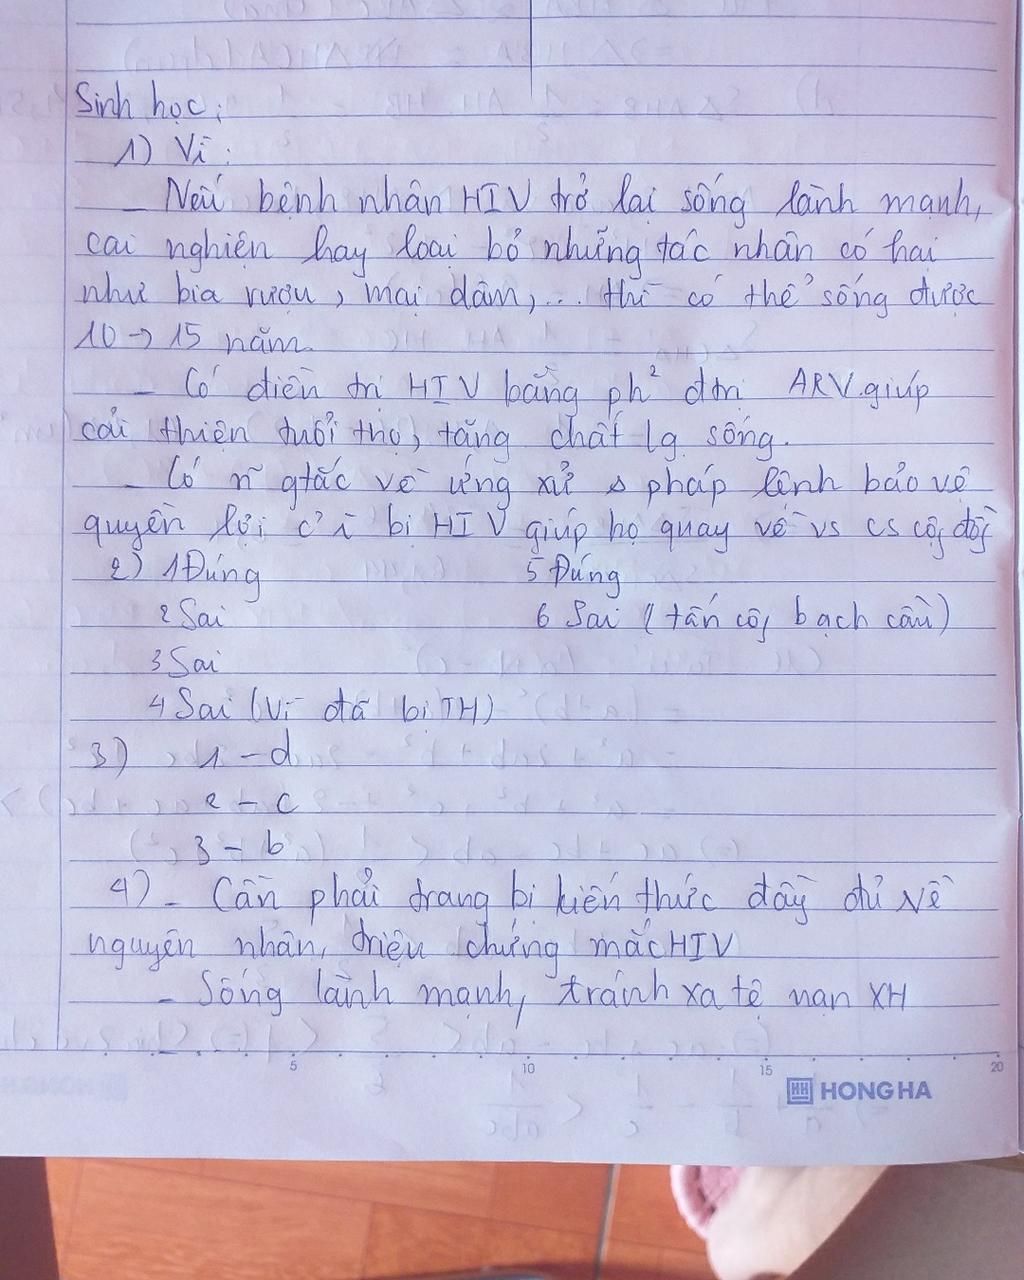 Sinh học:
1) Vì:
- Nếu bệnh nhân HIV trở lại sống lành mạnh,
cai nghiện hay loại bỏ những tác nhân có hại
như bia rượu, mại dâm,... thì có thể sống được
10 → 15 năm.
- Có điều trị HIV bằng ph² đtrị ARV giúp
cải thiện tuổi thọ, tăng chất lg sống.
- Có n~ gtắc về ứng xử & pháp lệnh bảo vệ
quyền lợi bị HIV giúp họ quay về vs cs
2) 1 Đúng 5 Đúng
2 Sai 6 Sai (tấn côg bạch cầu)
3 Sai
4 Sai (Vì đã bị TH)
3) 1 - d
2 - c
3 - b
4) - Cần phải trang bị kiến thức đầy đủ về
nguyên nhân, triệu chứng mắc HIV
- Sống lành mạnh, tránh xa tệ nạn XH
5 10 15 20
HH HONG HA